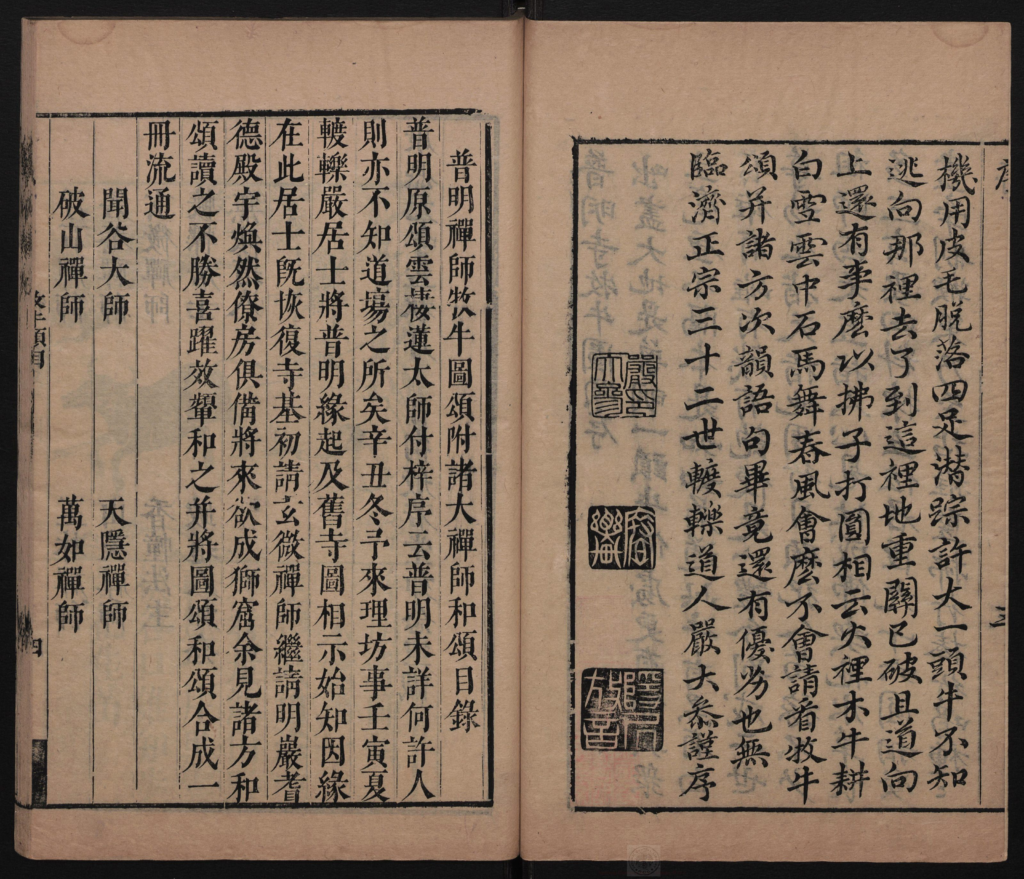 序
機用皮毛脱落四足潜踪許大一頭牛不知
逃向那裡去了到這裡地重關已破且道向
上還有事麼以拂子打圓相云火裡木牛耕
白雪雲中石馬舞春風會麼不會請看牧牛
頌并諸方次韻語句畢竟還有優劣也無
臨濟正宗三十二世轆轢道人嚴大叅謹序
三
普明禪師牧牛圖頌附諸大禪師和頌目錄
普明原頌雲棲蓮太師付梓序云普明未詳何許人
則亦不知道塲之所矣辛丑冬予來理坊事壬寅夏
轆轢嚴居士將普明緣起及舊寺圖相示始知因緣
在此居士既恢復寺基初請玄微禪師繼請明巖耆
德殿宇煥然僚房俱備將來欲成獅窟余見諸方和
頌讀之不勝喜躍效顰和之并將圖頌和頌合成一
冊流通
聞谷大師
天隱禪師
破山禪師
萬如禪師
四